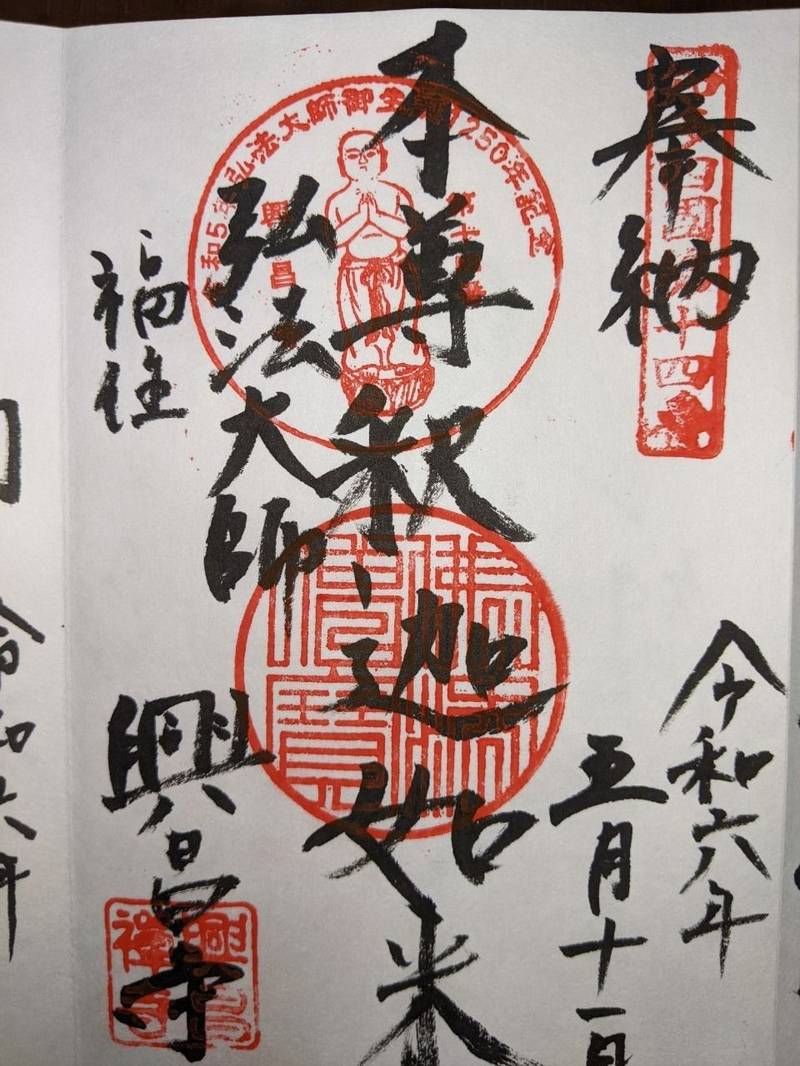 奉納
令和六年
五月十一日
本尊釈迦如来
弘法大師
福住
興昌寺
弘法大師御生誕1250年記念
興昌
令和六年